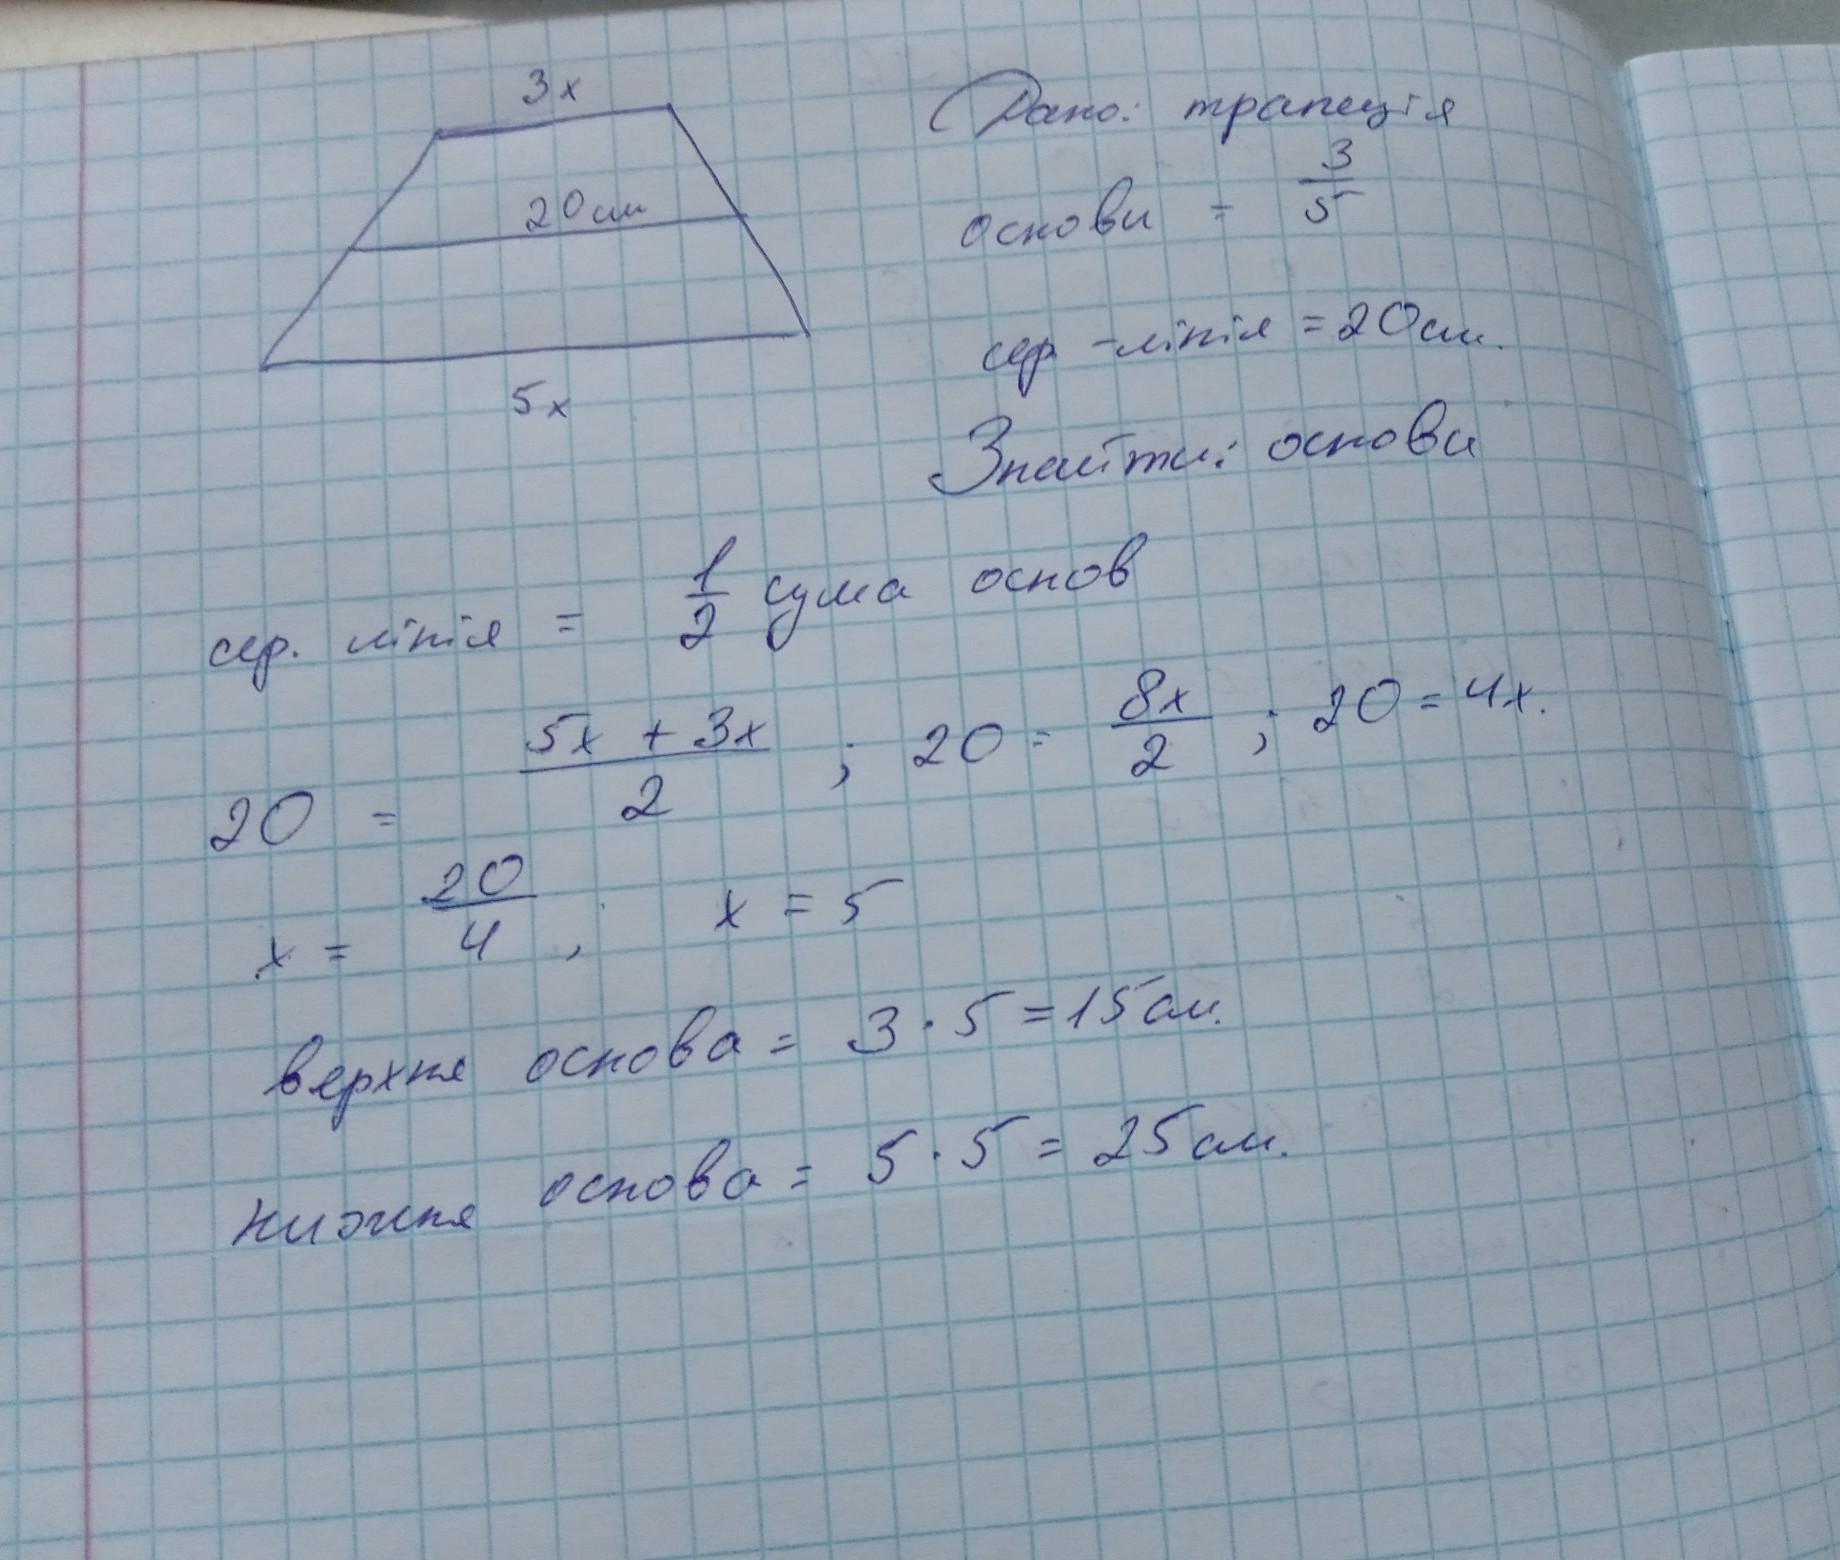 3x
20см
5x
Дано: трапеція
основи = 3/5
сер - лінія = 20см.
Знайти: основи
сер. лінія = 1/2 сума основ
20 = (5x + 3x)/2 ; 20 = 8x/2 ; 20 = 4x.
x = 20/4 ; x = 5
верхня основа = 3 · 5 = 15см.
нижня основа = 5 · 5 = 25см.